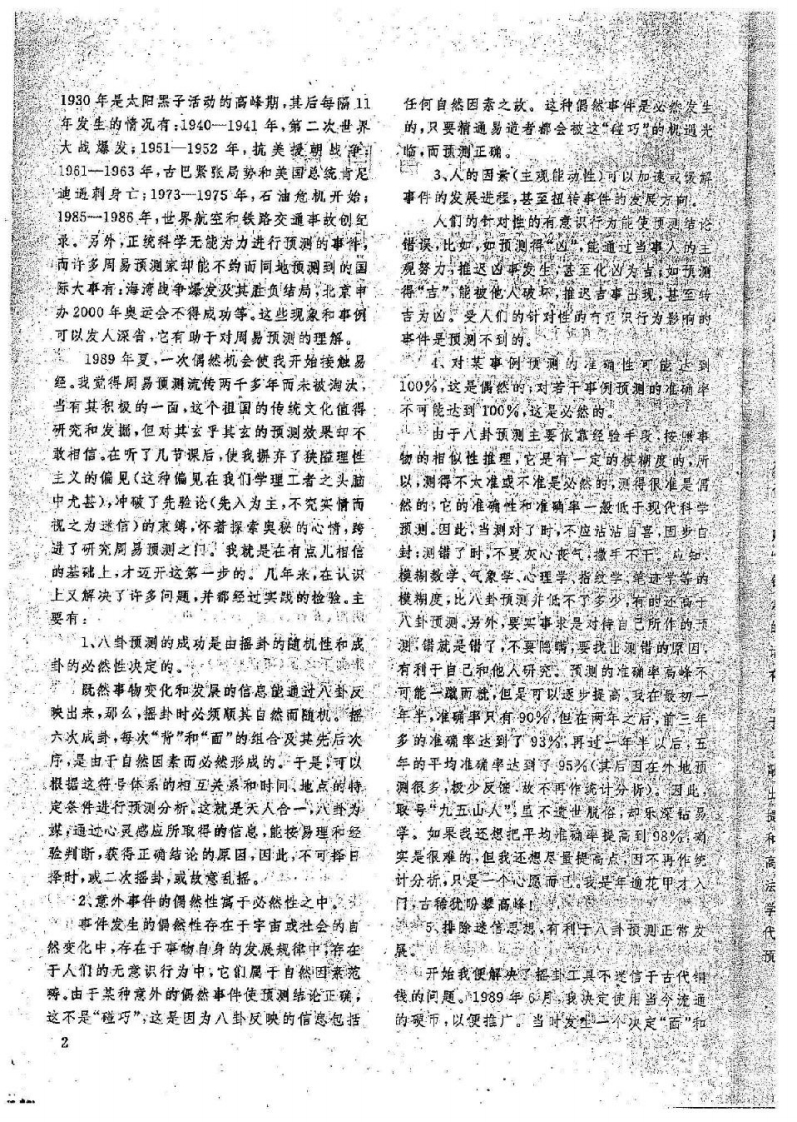 1930年是太阳黑子活动的高峰期,其后每隔11
年发生的情况有:1940—1941年,第二次世界
大战爆发;1951—1952年,抗美援朝战争;
1961—1963年,古巴紧张局势和美国总统肯尼
迪遇刺身亡;1973—1975年,石油危机开始;
1985—1986年,世界航空和铁路交通事故创纪
录。另外,正统科学无能为力进行预测的事件,
而许多周易预测家却能不约而同地预测到的国
际大事有:海湾战争爆发及其胜负结局,北京申
办2000年奥运会不得成功等。这些现象和事例
可以发人深省,它有助于对周易预测的理解。
1989年夏,一次偶然机会使我开始接触易
经。我觉得周易预测流传两千多年而未被淘汰,
当有其积极的一面,这个祖国的传统文化值得
研究和发掘,但对其玄乎其玄的预测效果却不
敢相信。在听了几节课后,使我摒弃了狭隘理性
主义的偏见(这种偏见在我们学理工者之头脑
中尤甚),冲破了先验论(先入为主,不究实情而
视之为迷信)的束缚,怀着探索奥秘的心情,跨
进了研究周易预测之门。我就是在有点儿相信
的基础上,才迈开这第一步的。几年来,在认识
上又解决了许多问题,并都经过实践的检验。主
要有:
1、八卦预测的成功是由摇卦的随机性和成
卦的必然性决定的。
既然事物变化和发展的信息能通过八卦反
映出来,那么,摇卦时必须顺其自然而随机。摇
六次成卦,每次“背”和“面”的组合及其先后次
序,是由于自然因素而必然形成的。于是,可以
根据这符号体系的相互关系和时间、地点的特
定条件进行预测分析。这就是天人合一,八卦为
媒,通过心灵感应所取得的信息,能按易理和经
验判断,获得正确结论的原因,因此,不可择日
择时,或二次摇卦,或故意乱摇。
2、意外事件的偶然性寓于必然性之中。
事件发生的偶然性存在于宇宙或社会的自
然变化中,存在于事物自身的发展规律中,存在
于人们的无意识行为中,它们属于自然因素范
畴。由于某种意外的偶然事件使预测结论正确,
这不是“碰巧”,这是因为八卦反映的信息包括
2
任何自然因素之故。这种偶然事件是必然发生
的,只要精通易道者都会被这“碰巧”的机遇光
临,而预测正确。
3、人的因素(主观能动性)可以加速或缓解
事件的发展进程,甚至扭转事件的发展方向。
人们的针对性的有意识行为能使预测结论
错误,比如,如预测得“凶”,能通过当事人的主
观努力,推迟凶事发生,甚至化凶为吉;如预测
得“吉”,能被他人破坏,推迟吉事出现,甚至转
吉为凶。受人们的针对性的有意识行为影响的
事件是预测不到的。
4、对某事例预测的准确性可能达到
100%,这是偶然的;对若干事例预测的准确率
不可能达到100%,这是必然的。
由于八卦预测主要依靠经验手段,按照事
物的相似性推理,它是有一定的模糊度的,所
以,测得不太准或不准是必然的,测得很准是偶
然的;它的准确性和准确率一般低于现代科学
预测。因此,当测对了时,不应沾沾自喜,固步自
封;测错了时,不要灰心丧气,撒手不干。应知,
模糊数学、气象学、心理学、指纹学、笔迹学等的
模糊度,比八卦预测并低不了多少,有时还高于
八卦预测。另外,要实事求是对待自己所作的预
测,错就是错了,不要隐瞒,要找出测错的原因,
有利于自己和他人研究。预测的准确率高峰不
可能一蹴而就,但是可以逐步提高。我在最初一
年半,准确率只有90%,但在两年之后,前三年
多的准确率达到了93%,再过一年半以后,五
年的平均准确率达到了95%(其后因在外地预
测很多,极少反馈,故不再作统计分析)。因此,
取号“九五山人”,虽不遗世脱俗,却乐深钻易
学。如果我还想把平均准确率提高到98%,确
实是很难的,但我还想尽量提高点,因不再作统
计分析,只是一个心愿而已。我是年逾花甲才入
门,古稀犹盼攀高峰!
5、排除迷信思想,有利于八卦预测正常发
展。
开始我便解决了摇卦工具不迷信于古代铜
钱的问题。1989年6月,我决定使用当今流通
的硬币,以便推广。当时发生一个决定“面”和